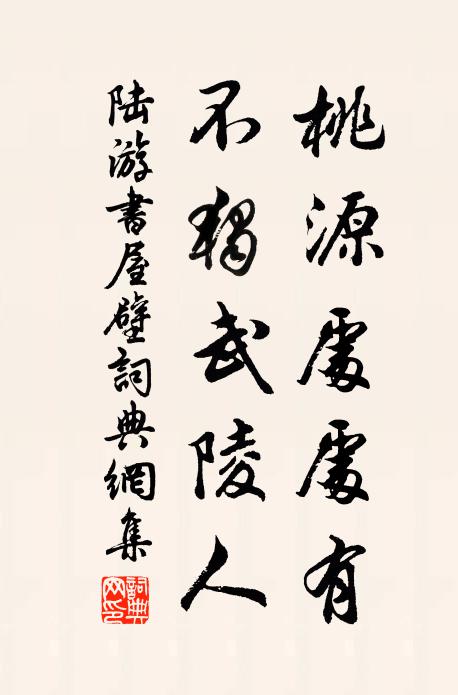 桃源處處有
不獨武陵人
陸游書屋壁詞典網集
詞典
网印